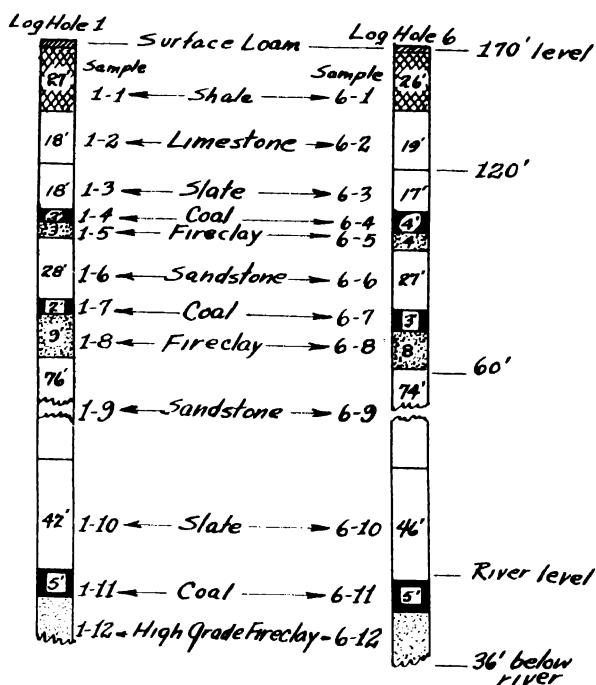 Log Hole 1
Log Hole 6
Surface Loam
170' level
Sample
Sample
27'
1-1
Shale
6-1
26'
18'
1-2
Limestone
6-2
19'
120'
18'
1-3
Slate
6-3
17'
1-4
Coal
6-4
4'
1-5
Fireclay
6-5
4'
28'
1-6
Sandstone
6-6
27'
2'
1-7
Coal
6-7
3'
9'
1-8
Fireclay
6-8
8
60'
76'
74'
1-9
Sandstone
6-9
1-10
Slate
6-10
46'
River level
5'
1-11
Coal
6-11
5'
1-12
High Grade Fireclay
6-12
36' below
river